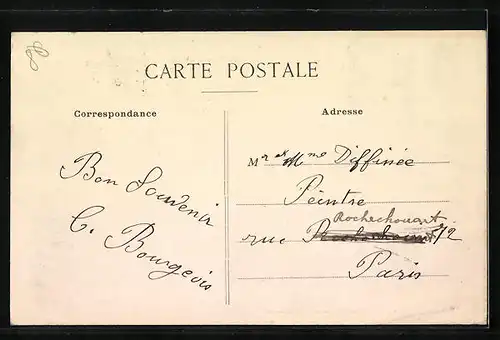 CARTE POSTALE
Correspondance
Adresse
Bon Souvenir
C. Bourgeois
Mr et Mme Diffinée
Peintre
Rochechouart
rue 72
Paris